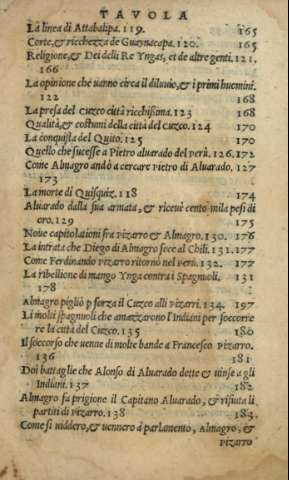 TAVOLA
La linea di Attabalipa. 119. 165
Corte, & ricchezza de Guaynacapa. 120. 165
Religione, & Dei delli Re Yngas, et de altre genti. 121.
166
La opinione che uanno circa il diluuio, & i primi huomini.
122 168
La presa del Cuzco città ricchissima. 123 168
Qualità, & costumi della città del Cuzco. 124 170
La conquista del Quito. 125 170
Quello che sucesse a Pietro aluarado nel Perù. 126. 172
Come Almagro andò a cercare Pietro di Aluarado. 127
173
La morte di Quisquiz. 118 174
Aluarado dalla sua armata, & riceuè cento mila pesi di
oro. 129 175
Noue capitolationi fra Pizarro & Almagro. 130. 176
La intrata che Diego di Almagro fece al Chili. 131. 177
Come Ferdinando Pizarro ritornò nel Perù. 132. 177
La ribellione di mango Ynga contra i Spagnuoli. 131
178
Almagro pigliò p forza il Cuzco alli Pizarri. 134. 197
Li molti spagnuoli che amazzarono l'Indiani per soccorre
re la città del Cuzco. 135 180
Il soccorso che uenne di molte bande a Francesco Pizarro.
136 181
Doi battaglie che Alonso di Aluarado dette & uinse a gli
Indiani. 137 182
Almagro fa prigione il Capitano Aluarado, & rifiuta li
partiti di Pizarro. 138 183.
Come si uiddero, & uennero à parlamento, Almagro, &
Pizarro